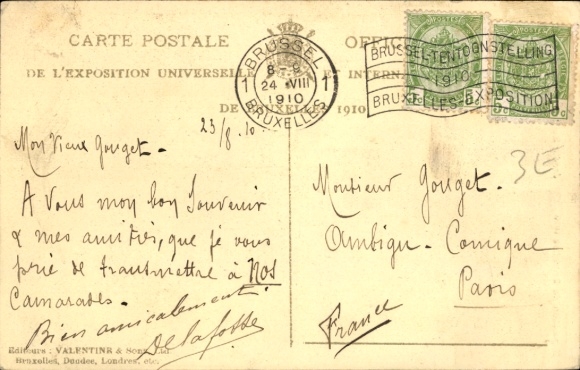 CARTE POSTALE OFFIC
DE L'EXPOSITION UNIVERSELLE ET INTERN
DE BRUXELLES 1910
BRUSSEL
1 8-S 1
24 VIII
1910
BRUXELLES
BRUSSEL-TENTOONSTELLING
1910
BRUXELLES-EXPOSITION
POSTES
POSTES
23/8.10.
Mon Vieux Gouget-
A Vous mon bon Souvenir
& mes amitiés, que je vous
prie de transmettre à Nos
Camarades-
Bien amicalement
Delafosse
3E
Monsieur Gouget-
Ambigu-Comique
Paris
France
Editeurs: VALENTINE & Sons, Ltd.
Bruxelles, Dundee, Londres, etc.